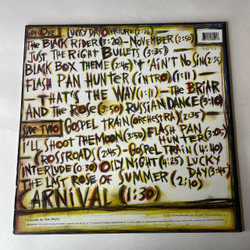 Side One Lucky Day Overture (2:27)
The Black Rider (3:20) – November (2:50)
Just The Right Bullets (3:35)
Black Box Theme (2:45) T'Ain't No Sin (2:25)
Flash Pan Hunter (Intro) (1:11) –
– That's The Way (1:11) – The Briar
And The Rose (3:50) Russian Dance (3:10)
Side Two Gospel Train (Orchestra) (2:35)
I'll Shoot The Moon (3:50) Flash Pan
Hunter (3:10)
Crossroads (2:45) – Gospel Train (4:45)
Interlude (0:30) Oily Night (4:25) Lucky
Day (3:45)
The Last Rose Of Summer (2:10)
Carnival (1:30)
Produced by Tom Waits